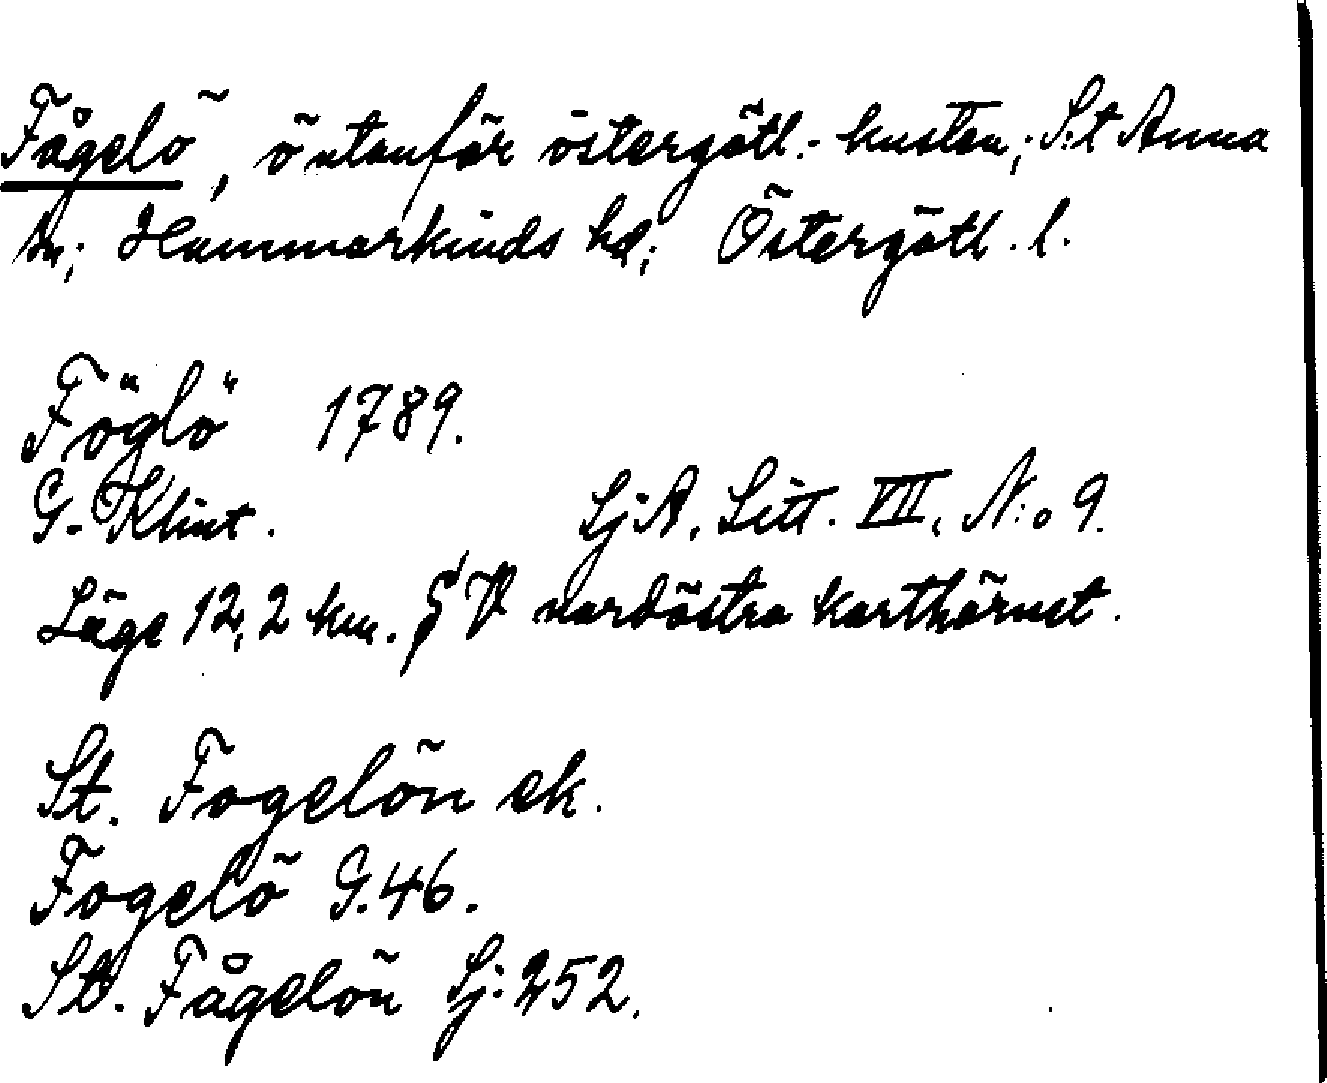 Fågelö, ö utanför östergötl.- kusten; S:t Anna
sn; Hammarkinds hd; Östergötl. l.
Föglö 1789.
G. Klint. Sj:A. Litt. VII. N:o 9.
Läge 12,2 km. S V nordöstra karthörnet.
St. Fogelön ek.
Fogelö G.46.
St. Fågelön Sj:252.